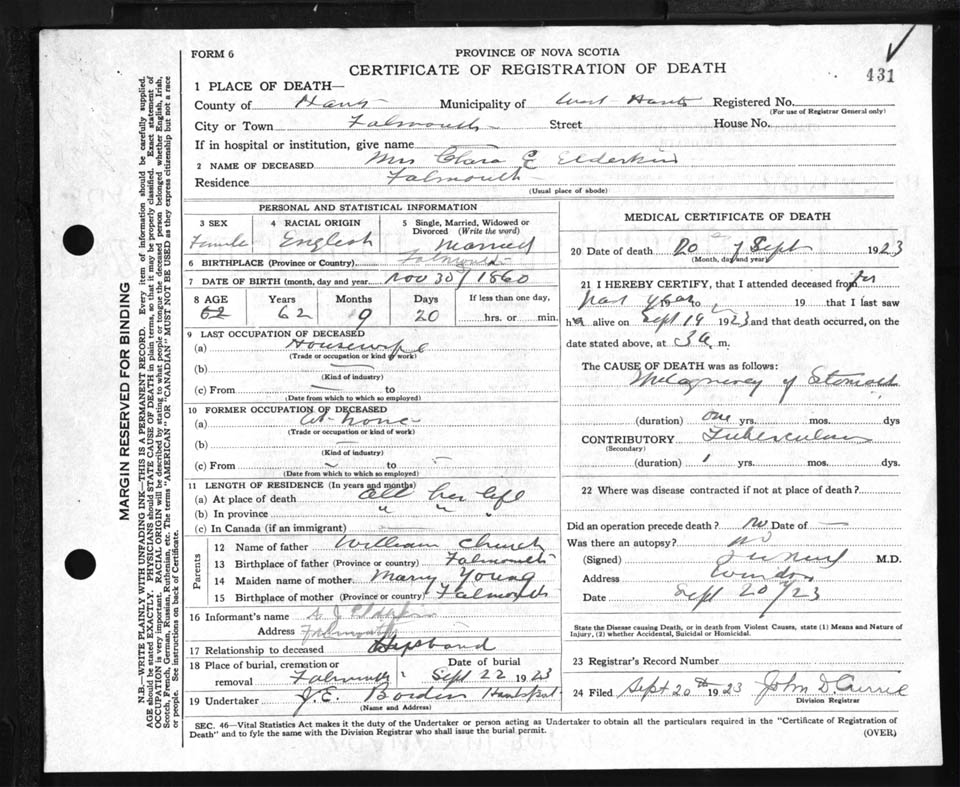 FORM 6
PROVINCE OF NOVA SCOTIA
CERTIFICATE OF REGISTRATION OF DEATH
431
1 PLACE OF DEATH—
County of Hants Municipality of West Hants Registered No.
(For use of Registrar General only)
City or Town Falmouth Street House No.
If in hospital or institution, give name
2 NAME OF DECEASED Mrs Clara E Elderkin
Residence Falmouth
(Usual place of abode)
PERSONAL AND STATISTICAL INFORMATION
3 SEX 4 RACIAL ORIGIN 5 Single, Married, Widowed or
Divorced (Write the word)
Female English Married
6 BIRTHPLACE (Province or Country) Falmouth
7 DATE OF BIRTH (month, day and year) Nov 30 / 1860
8 AGE Years Months Days If less than one day,
62 62 9 20 hrs. or min.
9 LAST OCCUPATION OF DECEASED
(a) Housewife
(Trade or occupation or kind of work)
(b)
(Kind of industry)
(c) From to
(Date from which to which so employed)
10 FORMER OCCUPATION OF DECEASED
(a) At home
(Trade or occupation or kind of work)
(b)
(Kind of industry)
(c) From to
(Date from which to which so employed)
11 LENGTH OF RESIDENCE (In years and months)
(a) At place of death all her life
(b) In province " " "
(c) In Canada (if an immigrant)
Parents
12 Name of father William Church
13 Birthplace of father (Province or country) Falmouth
14 Maiden name of mother Mary Young
15 Birthplace of mother (Province or country) Falmouth
16 Informant's name
Address Falmouth
17 Relationship to deceased Husband
18 Place of burial, cremation or Date of burial
removal Falmouth Sept 22 1923
19 Undertaker J.E. Borden Hantsport
(Name and Address)
MEDICAL CERTIFICATE OF DEATH
20 Date of death 20 of Sept 1923
(Month, day and year)
21 I HEREBY CERTIFY, that I attended deceased from for
past year to 19 that I last saw
her alive on Sept 19 1923 and that death occurred, on the
date stated above, at 3 a m.
The CAUSE OF DEATH was as follows:
Malignancy of Stomach
(duration) one yrs. mos. days
CONTRIBUTORY Tubercular
(Secondary)
(duration) 1 yrs. mos. dys.
22 Where was disease contracted if not at place of death?
Did an operation precede death? no Date of —
Was there an autopsy? no
(Signed) M.D.
Address Windsor
Date Sept 20/23
State the Disease causing Death, or in death from Violent Causes, state (1) Means and Nature of
Injury, (2) whether Accidental, Suicidal or Homicidal.
23 Registrar's Record Number
24 Filed Sept 20th 1923 John D. Currie
Division Registrar
SEC. 46—Vital Statistics Act makes it the duty of the Undertaker or person acting as Undertaker to obtain all the particulars required in the "Certificate of Registration of
Death" and to fyle the same with the Division Registrar who shall issue the burial permit.
(OVER)
MARGIN RESERVED FOR BINDING
N.B.—WRITE PLAINLY WITH UNFADING INK—THIS IS A PERMANENT RECORD. Every item of information should be carefully supplied.
AGE should be stated EXACTLY. PHYSICIANS should STATE CAUSE OF DEATH in plain terms, so that it may be properly classified. Exact statement of
OCCUPATION is very important. RACIAL ORIGIN will be described by stating to what people or tongue the deceased person belonged whether English, Irish,
Scotch, French, German, Russian, Ruthenian, etc. The terms "AMERICAN" OR "CANADIAN" MUST NOT BE USED as they express citizenship but not a race
or people. See instructions on back of Certificate.